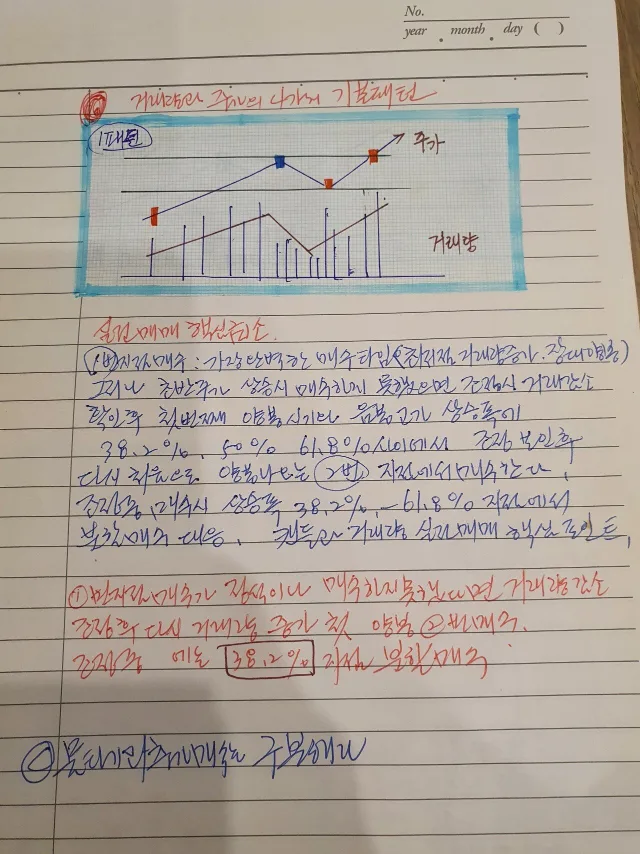 No.
year . month . day ( )
거래량과 주가의 4가지 기본패턴
1패턴
주가
거래량
실전매매 핵심급소.
1번지점매수 : 가장 완벽한 매수타임(최저점 거래량증가. 장대양봉)
그러나 초반주가 상승시 매수하지 못했으면 조정시 거래감소
확인후 첫번째 양봉
38.2%, 50% 61.8%사이에서 조정 보인후
다시 처음으로 양봉나오는 2번 지점에서 매수한다.
조정중, 매수시 상승폭 38.2%,-61.8% 지점에서
분할매수 대응, 캔들과 거래량 실전매매 핵심 포인트,
①번지점매수가 정석이나 매수하지못했다면 거래량감소
조정후 다시 거래량 증가 첫 양봉 ②번매수.
조정중 에는 38.2% 지점 분할매수